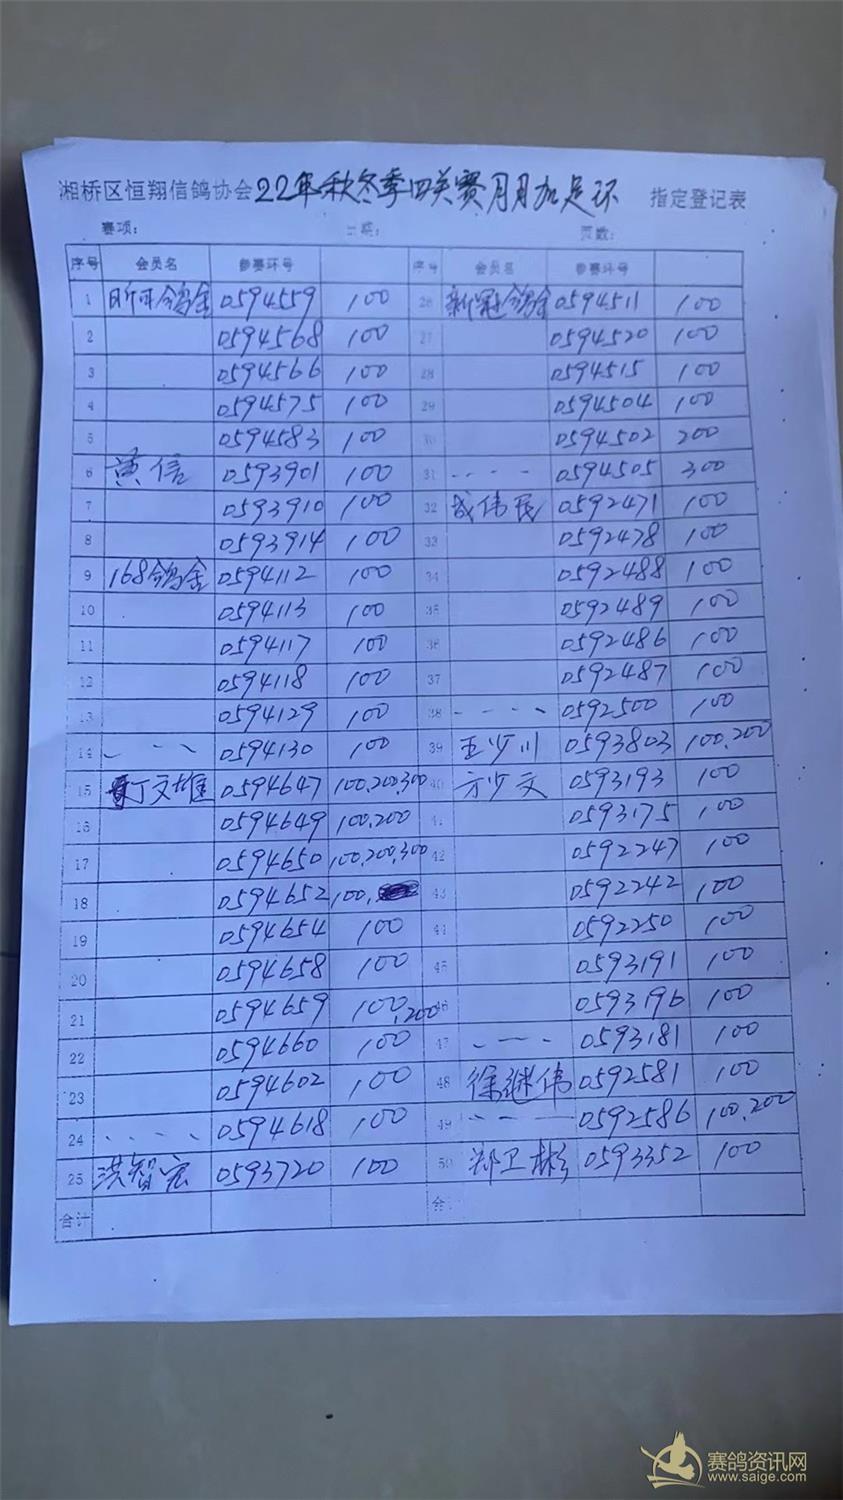 湘桥区恒翔信鸽协会22年秋冬季四关赛月月加足环 指定登记表
赛项: 日期: 页数:
序号 会员名 参赛环号 序号 会员名 参赛环号
1 昕开鸽舍 0594559 100 26 新冠鸽舍 0594511 100
2 0594568 100 27 0594520 100
3 0594566 100 28 0594515 100
4 0594575 100 29 0594504 100
5 0594583 100 30 0594502 200
6 黄信 0593901 100 31 - - - - 0594505 300
7 0593910 100 32 成伟民 0592471 100
8 0593914 100 33 0592478 100
9 168鸽舍 0594112 100 34 0592488 100
10 0594113 100 35 0592489 100
11 0594117 100 36 0592486 100
12 0594118 100 37 0592487 100
13 0594129 100 38 - - - - 0592500 100
14 - - - 0594130 100 39 王少川 0593803 100.200
15 丁文雄 0594647 100,200,300 40 方少文 0593193 100
16 0594649 100,200 41 0593175 100
17 0594650 100,200,300 42 0592247 100
18 0594652 100, 43 0592242 100
19 0594654 100 44 0592250 100
20 0594658 100 45 0593191 100
21 0594659 100,200 46 0593196 100
22 0594660 100 47 - - - - 0593181 100
23 0594602 100 48 徐继伟 0592581 100
24 - - - - 0594618 100 49 - - - 0592586 100,200
25 洪智宏 0593720 100 50 郑卫彬 0593352 100
合计 合计
赛鸽资讯网
www.saige.com